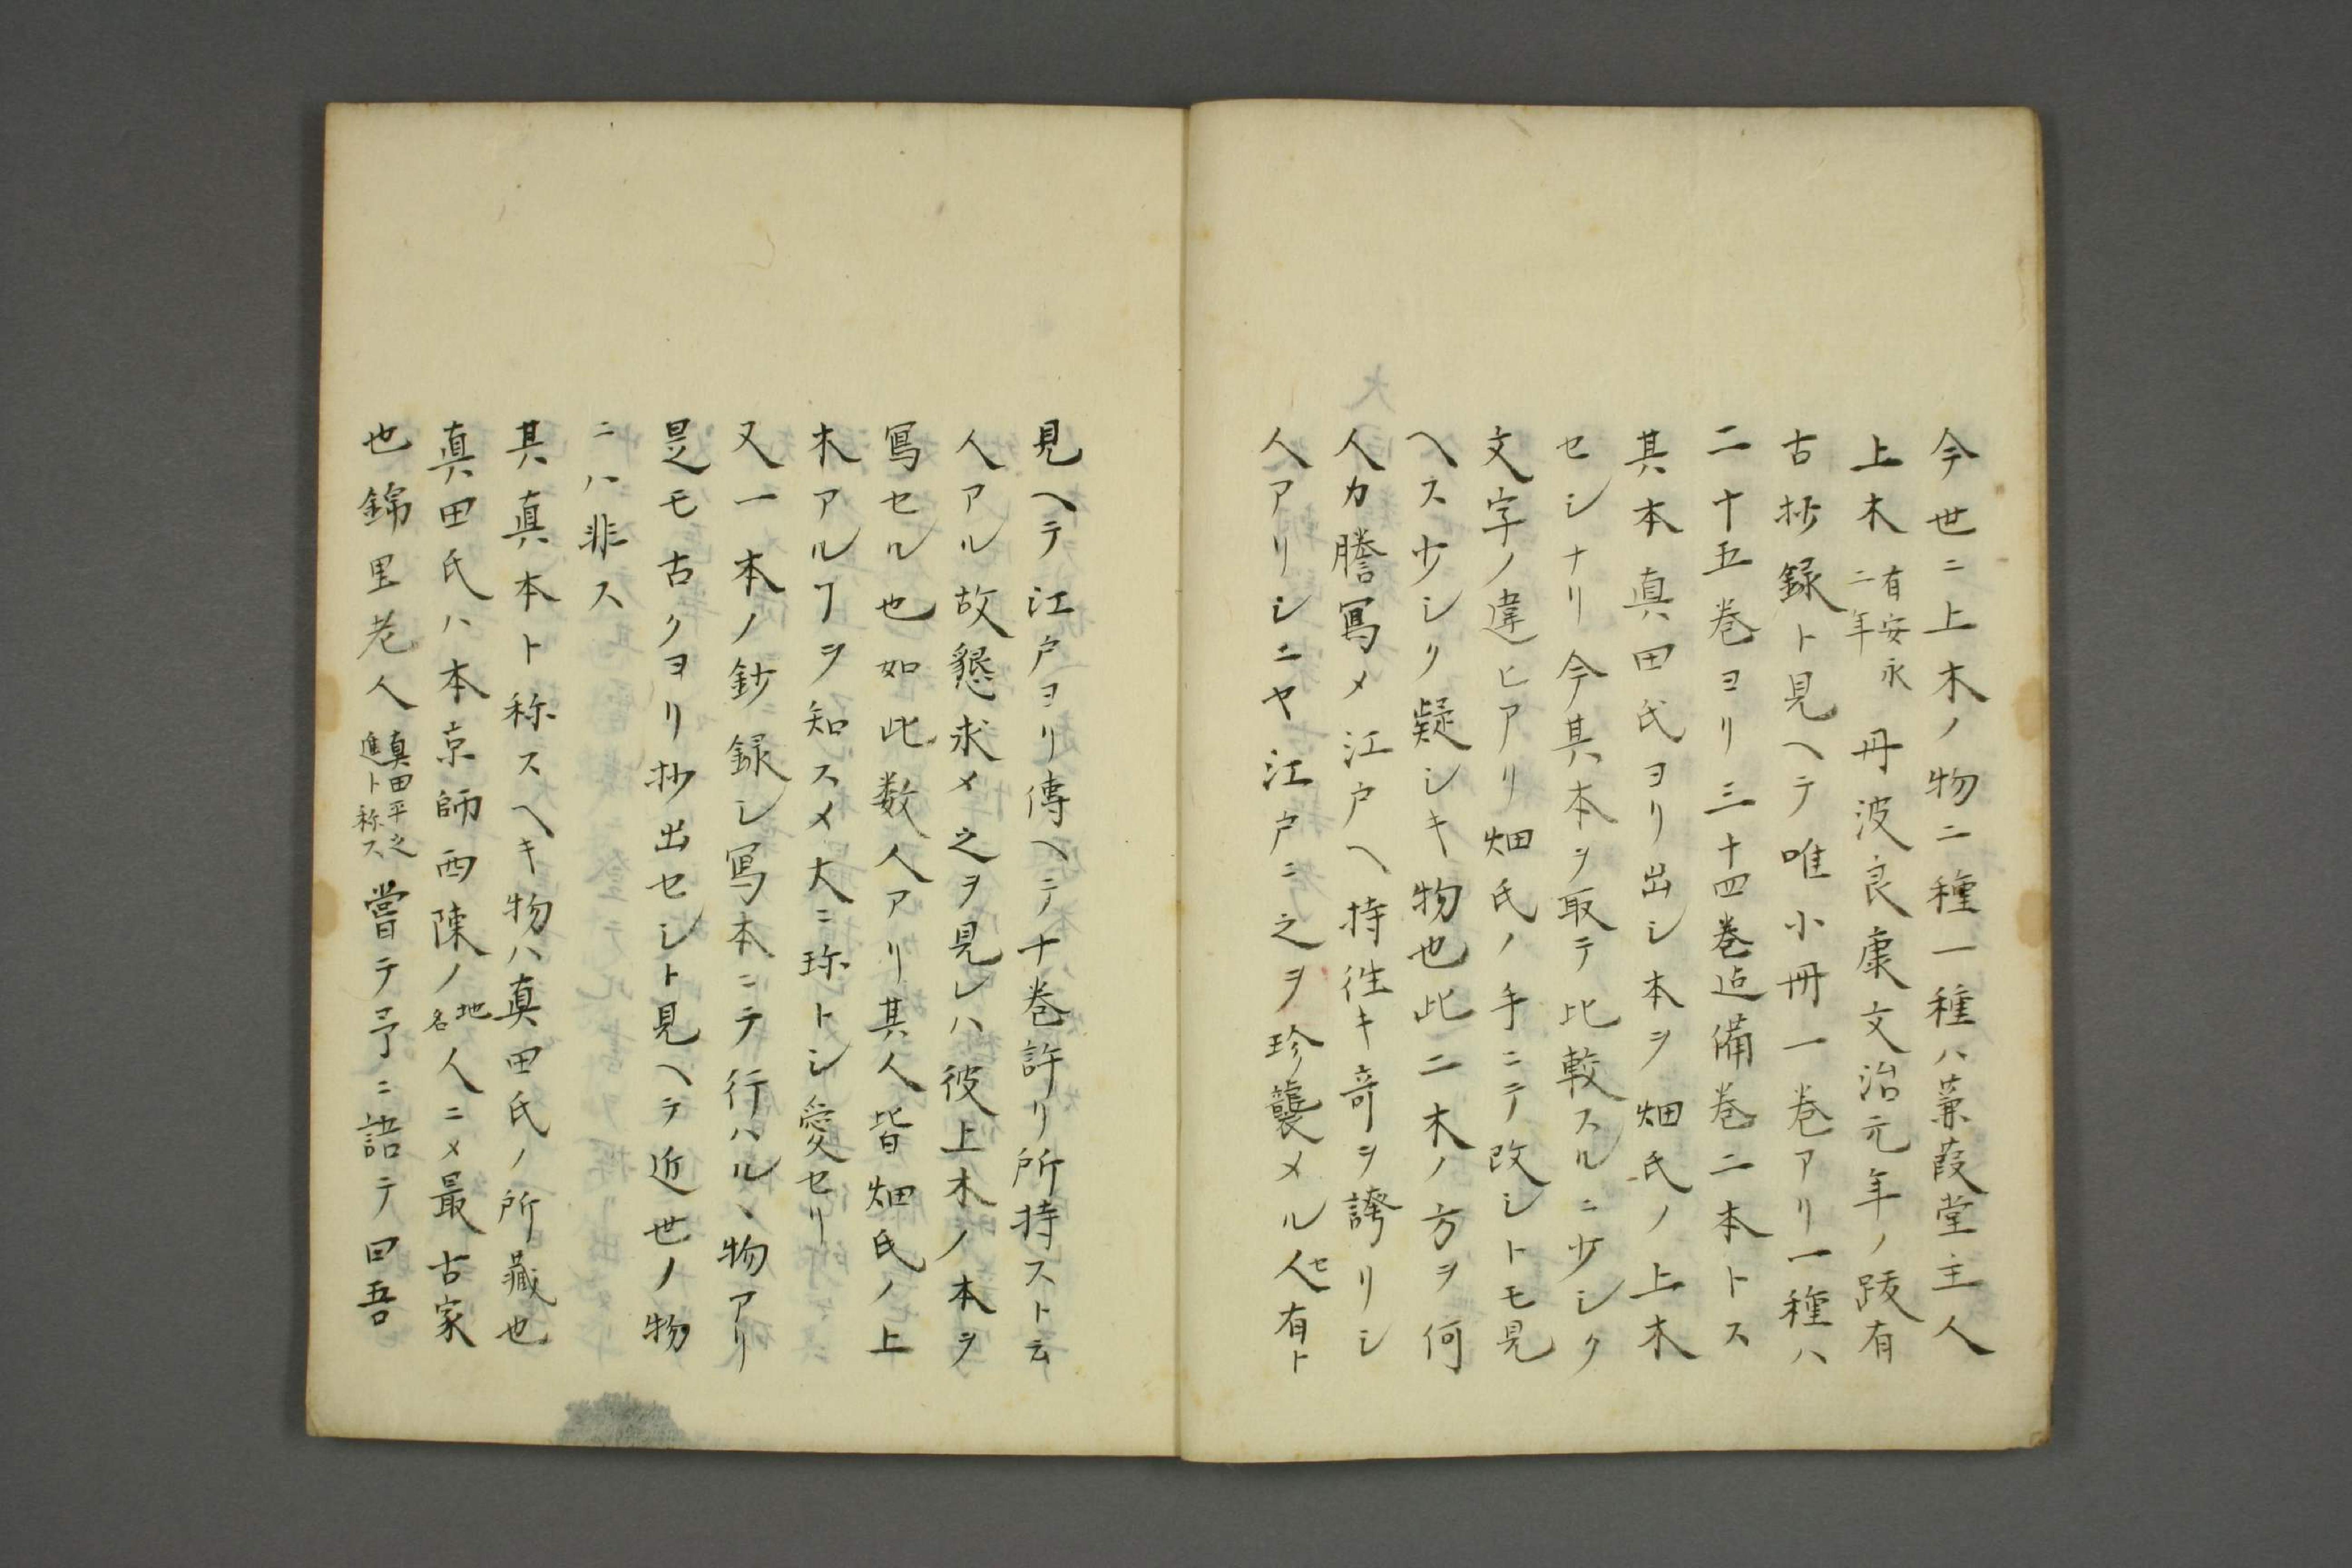 今世ニ上木ノ物ニ種一種ハ蒹葭堂主人
上木有安永二年丹波良康文治元年ノ跋有
古抄録ト見ヘテ唯小冊一巻アリ一種ハ
二十五巻ヨリ三十四巻迠備巻二本トス
其本真田氏ヨリ出シ本ヲ畑氏ノ上木
セシナリ今其本ヲ取テ比較スルニ少シク
文字ノ違ヒアリ畑氏ノ手ニテ改シトモ見
ヘス少シク疑シキ物也此二木ノ方ヲ何
人カ謄寫メ江戸ヘ持往キ奇ヲ誇リシ
人アリシニヤ江戸ニ之ヲ珍襲メル人セ有ト
見ヘテ江戸ヨリ傳ヘテ十巻許リ所持スト云
人アル故懇求メ之ヲ見レハ彼上木ノ本ヲ
寫セル也如此数人アリ其人皆畑氏ノ上
木アルヿヲ知スメ大ニ珎トシ愛セリ
又一本ノ鈔録シ寫本ニテ行ハルヽ物アリ
是モ古クヨリ抄出セシト見ヘテ近世ノ物
ニハ非ス
其真本ト称スヘキ物ハ真田氏ノ所蔵也
真田氏ハ本京師西陳ノ地名人ニメ最古家
也錦里老人真田平之進ト称ス嘗テ予ニ語テ曰吾